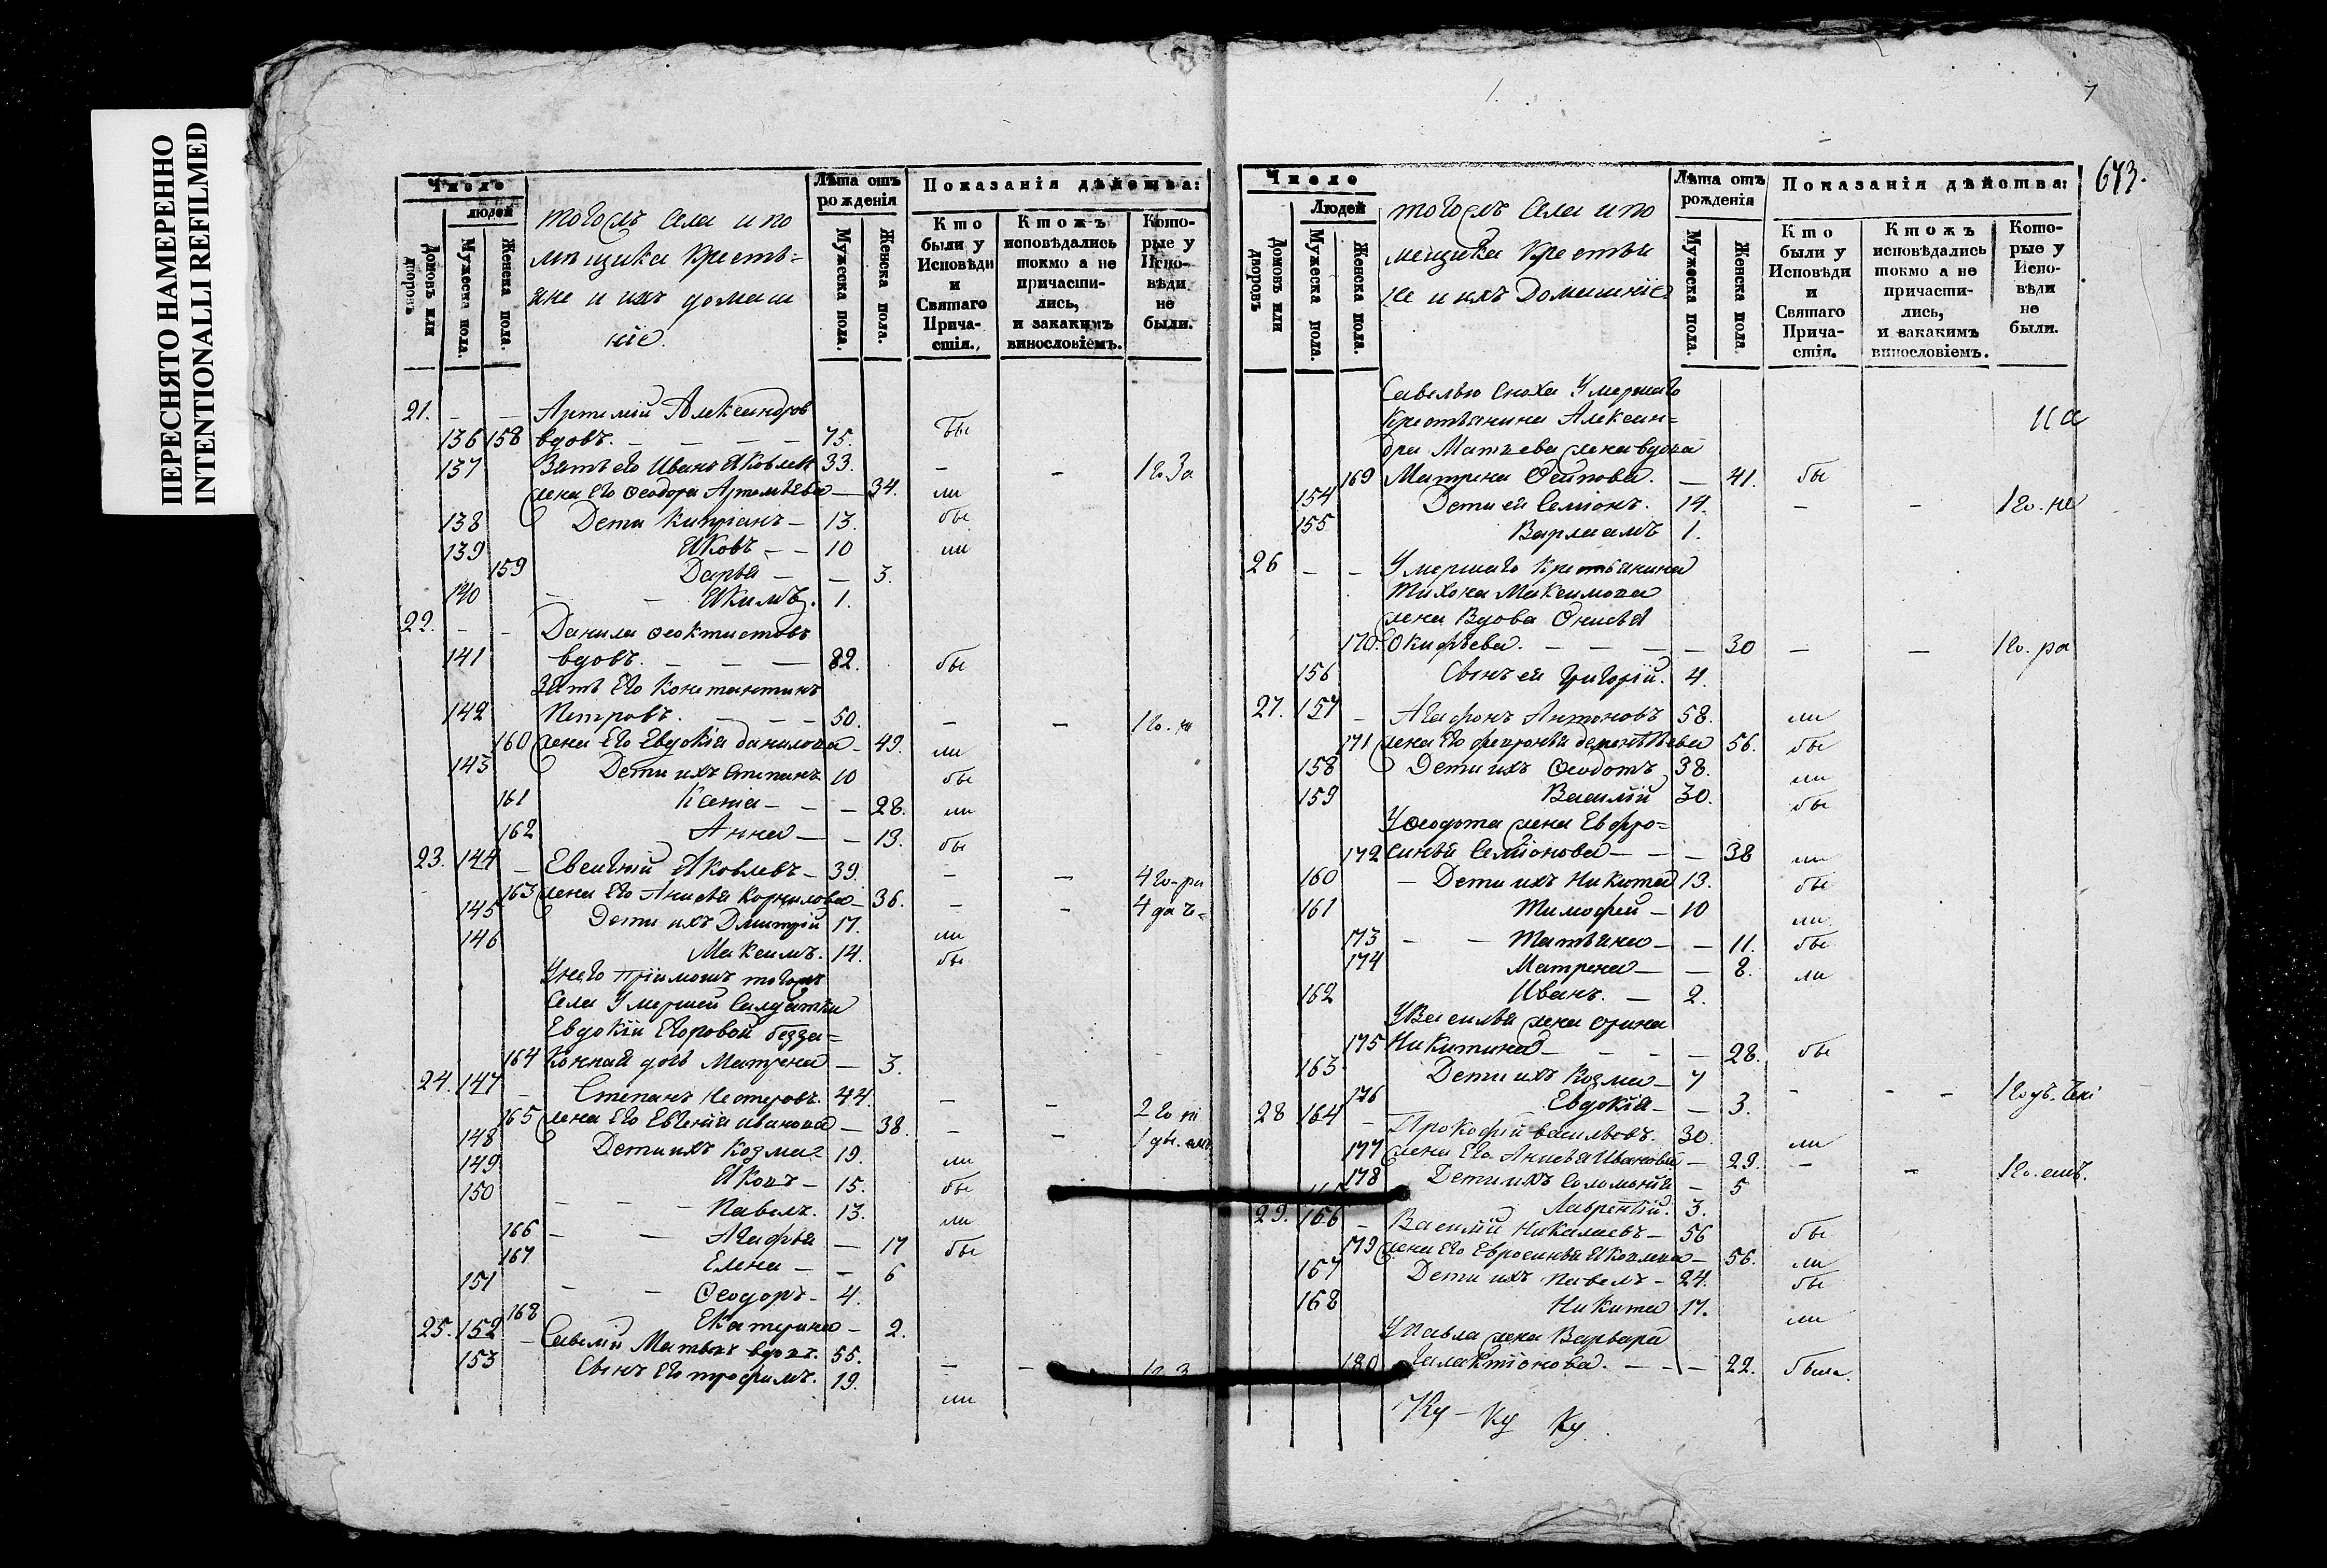 ПЕРЕСНЯТО НАМЕРЕННО
INTENTIONALLI REFILMED
Число
людей
Домовъ или дворовъ
Мужеска пола.
Женска пола.
тогожъ села и по
мѣщика крестья=
яне и ихъ домаш
ніе.
Лѣта отъ рожденія
Мужеска пола.
Женска пола.
Показанія дѣйства:
Кто были у Исповѣди и Святаго Причастія.
Ктожъ исповѣдались токмо а не причастились, и закакимъ винословіемъ.
Которые у Исповѣди не были.
21. - - Артемій Александров
136 158 вдовъ. - - - - 75. бы
137 Зять его Иванъ Яковлевъ 33. - - 1 го За
жена Его Феодора Артемьева - 34. ли
138 Дети Кипріанъ - 13. бы
139 Яковъ - - 10 ли
159 Дарья - - 3.
140 - - Якимъ. 1.
22. - - Данила Феоктистовъ
141 вдовъ. - - - 82. бы
Зять Его Константинъ
142 Петровъ. - - - 50. - - 1 го.
160 жена Его Евдокія данилова - 49. ли
143 Дети ихъ Степанъ 10 бы
161 Ксенія - - - 28. ли
162 Анна - - 13. бы
23. 144 - Евсигній Яковлевъ - 39. - - 4 го-ра
163 жена Его Анисья Корнилова - 36. - - 4 да
145 Дети ихъ Дмитрій 17. ли
146 Максимъ. 14. бы
Унего пріимошъ тогожъ
села Умершей Салдатки
Евдокіи Егоровой беззa=
164 Конная дочь Матрена - 3.
24. 147 - Степанъ Нестеровъ. 44. - - 2 го
165 жена Его Евгенія иванова - 38. - - 1 дв.
148 Дети ихъ Козма 19. ли
149 Яковъ - 15. бы
150 - - Павелъ. 13. ли
166 - - Агафья - 17 бы
167 Елена - - 6
151 - - Феодоръ - 4.
168 Екатерина - 2.
25. 152 - Савелій Матвеевъ вдовъ. 55. - - 1 го З
153 Сынъ Его трофимъ. 19. ли
7
673.
Число
Людей
Домовъ или дворовъ
Мужеска пола.
Женска пола.
тогожъ села и по
мещика крестья
не и ихъ Домашніе
Лѣта отъ рожденія
Мужеска пола.
Женска пола
Показанія дѣйства:
Кто были у Исповѣди и Святаго Причастія.
Ктожъ исповѣдались токмо а не причастились, и закакимъ винословіемъ.
Которые у Исповѣди не были.
Савелью сноха Умершаго
Крестьянина Алексан=
дра Матвева жена вдова
169 Матрена Осипова. - 41. бы
154 Дети ей Семіонъ. 14. - - 1 го. не
155 Варлаамъ 1.
26 - - Умершаго Крестьянина
Тихона Максимова
жена Вдова Онисья
170. Окифьева. - - - - 30 - - 1 го. ра
156 Сынъ ей Григорій. 4.
27. 157 - Агафонъ Антоновъ 58. ли
171 жена Его февронья дементьева 56. бы
158 Дети ихъ Феодотъ 38. ли
159 Василій 30. бы
УФеодота жена Евфро=
172 синья Семіонова - - - 38 ли
160 - Дети ихъ Никита 13. бы
161 Тимофей - 10 ли
173 - - Татьяна - - 11. бы
174 Матрена - - 8. ли
162 Иванъ. - 2.
УВасилья жена Орина
175 Никитина - - - - 28. бы
163 Дети ихъ Козма - 7
176 Евдокія - - 3.
28 164 - Прокофій васильовъ. 30. - - 1 го
177 жена Его Анисья Иванова - 29. ли
178 Дети ихъ Соломонія - 5 - - 1 го. емъ.
Лаврентій. 3.
29. 166 - Василій Николаевъ - 56 бы
179 жена Его Евросинья Яковлева - 56. ли
167 Дети ихъ Павелъ - 24. бы
168 Никита 17. ли
УПавла жена Варвара
180 Галактіонова. - - - 22. была.
Ку - Ку Ку